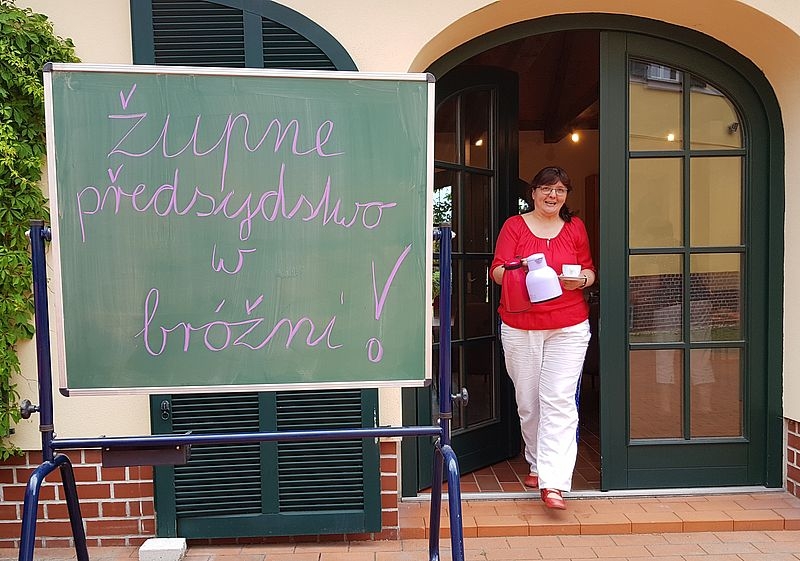 Župne
předsydstwo
w
bróžni!